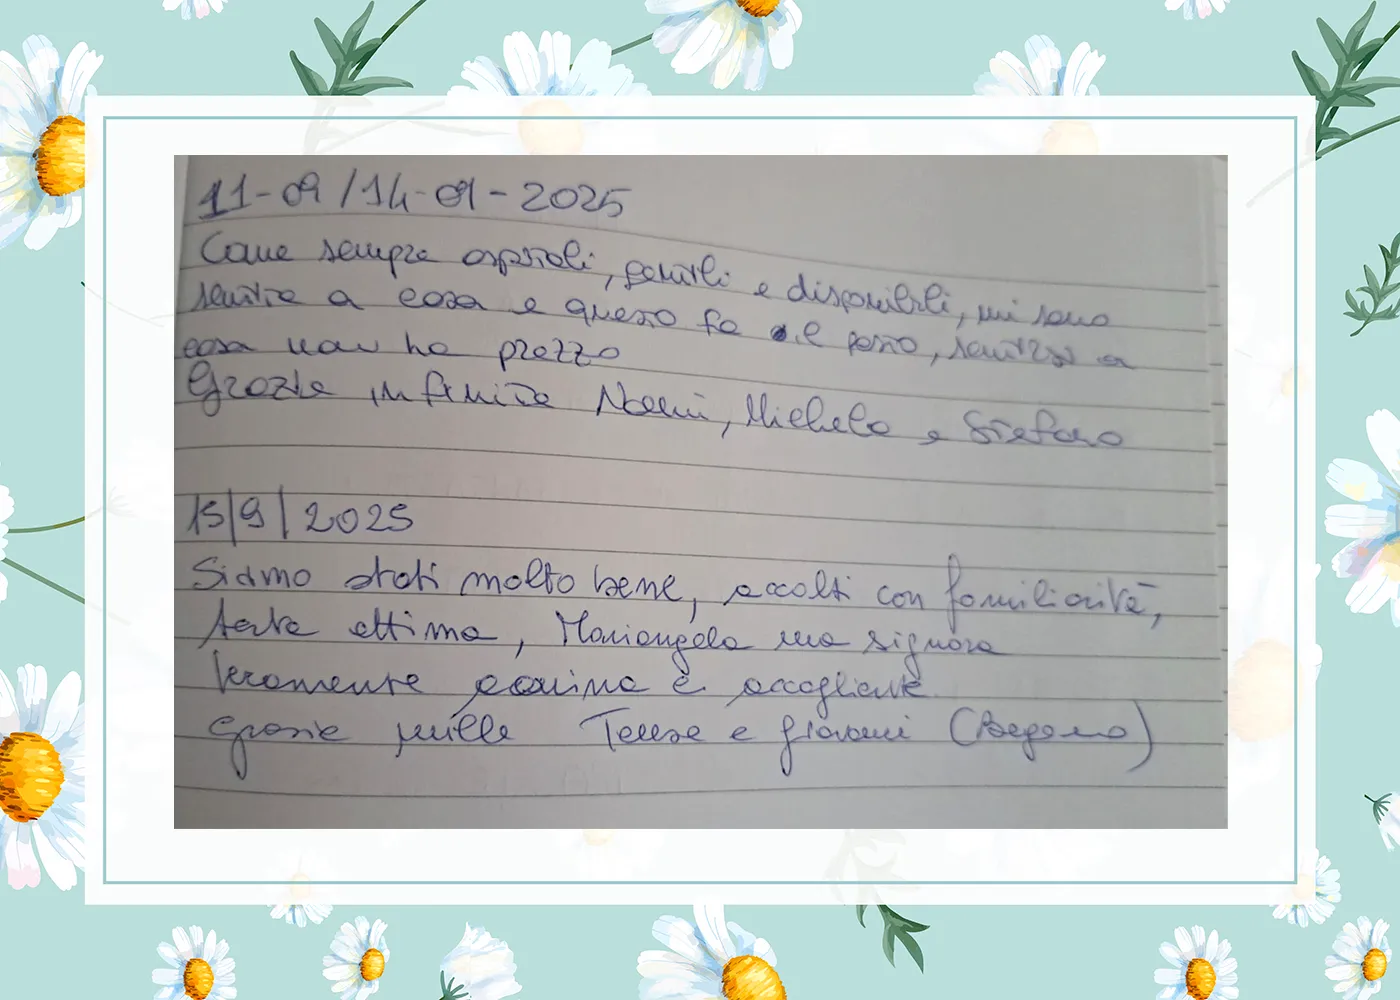 11-09/14-09-2025
Come sempre ospitali, gentili e disponibili, mi sono
sentita a casa e questo fa il posto, sentirsi a
casa non ha prezzo
Grazie infinite Noemi, Michele e Stefano
15/9/2025
Siamo stati molto bene, accolti con familiarità,
torta ottima, Mariangela una signora
veramente carina e accogliente
Grazie mille Teresa e Giovanni (Bergamo)